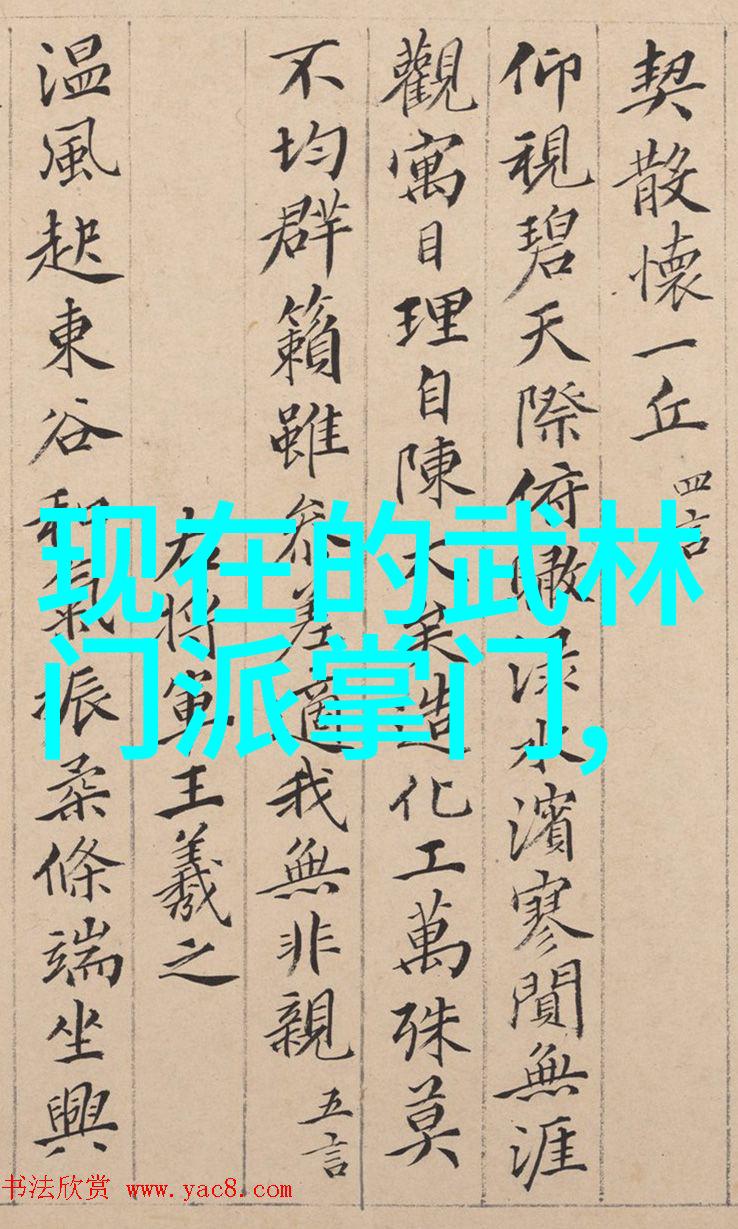 契散懷一丘 四言
仰視碧天際俯瞰渌水濱寥閴無涯
觀寓目理自陳大矣造化工萬殊莫
不均群籟雖参差適我無非親 五言
右將軍王羲之
温風起東谷和氣振柔條端坐興
现在的武林
门派掌门,
书法欣赏 www.yac8.com